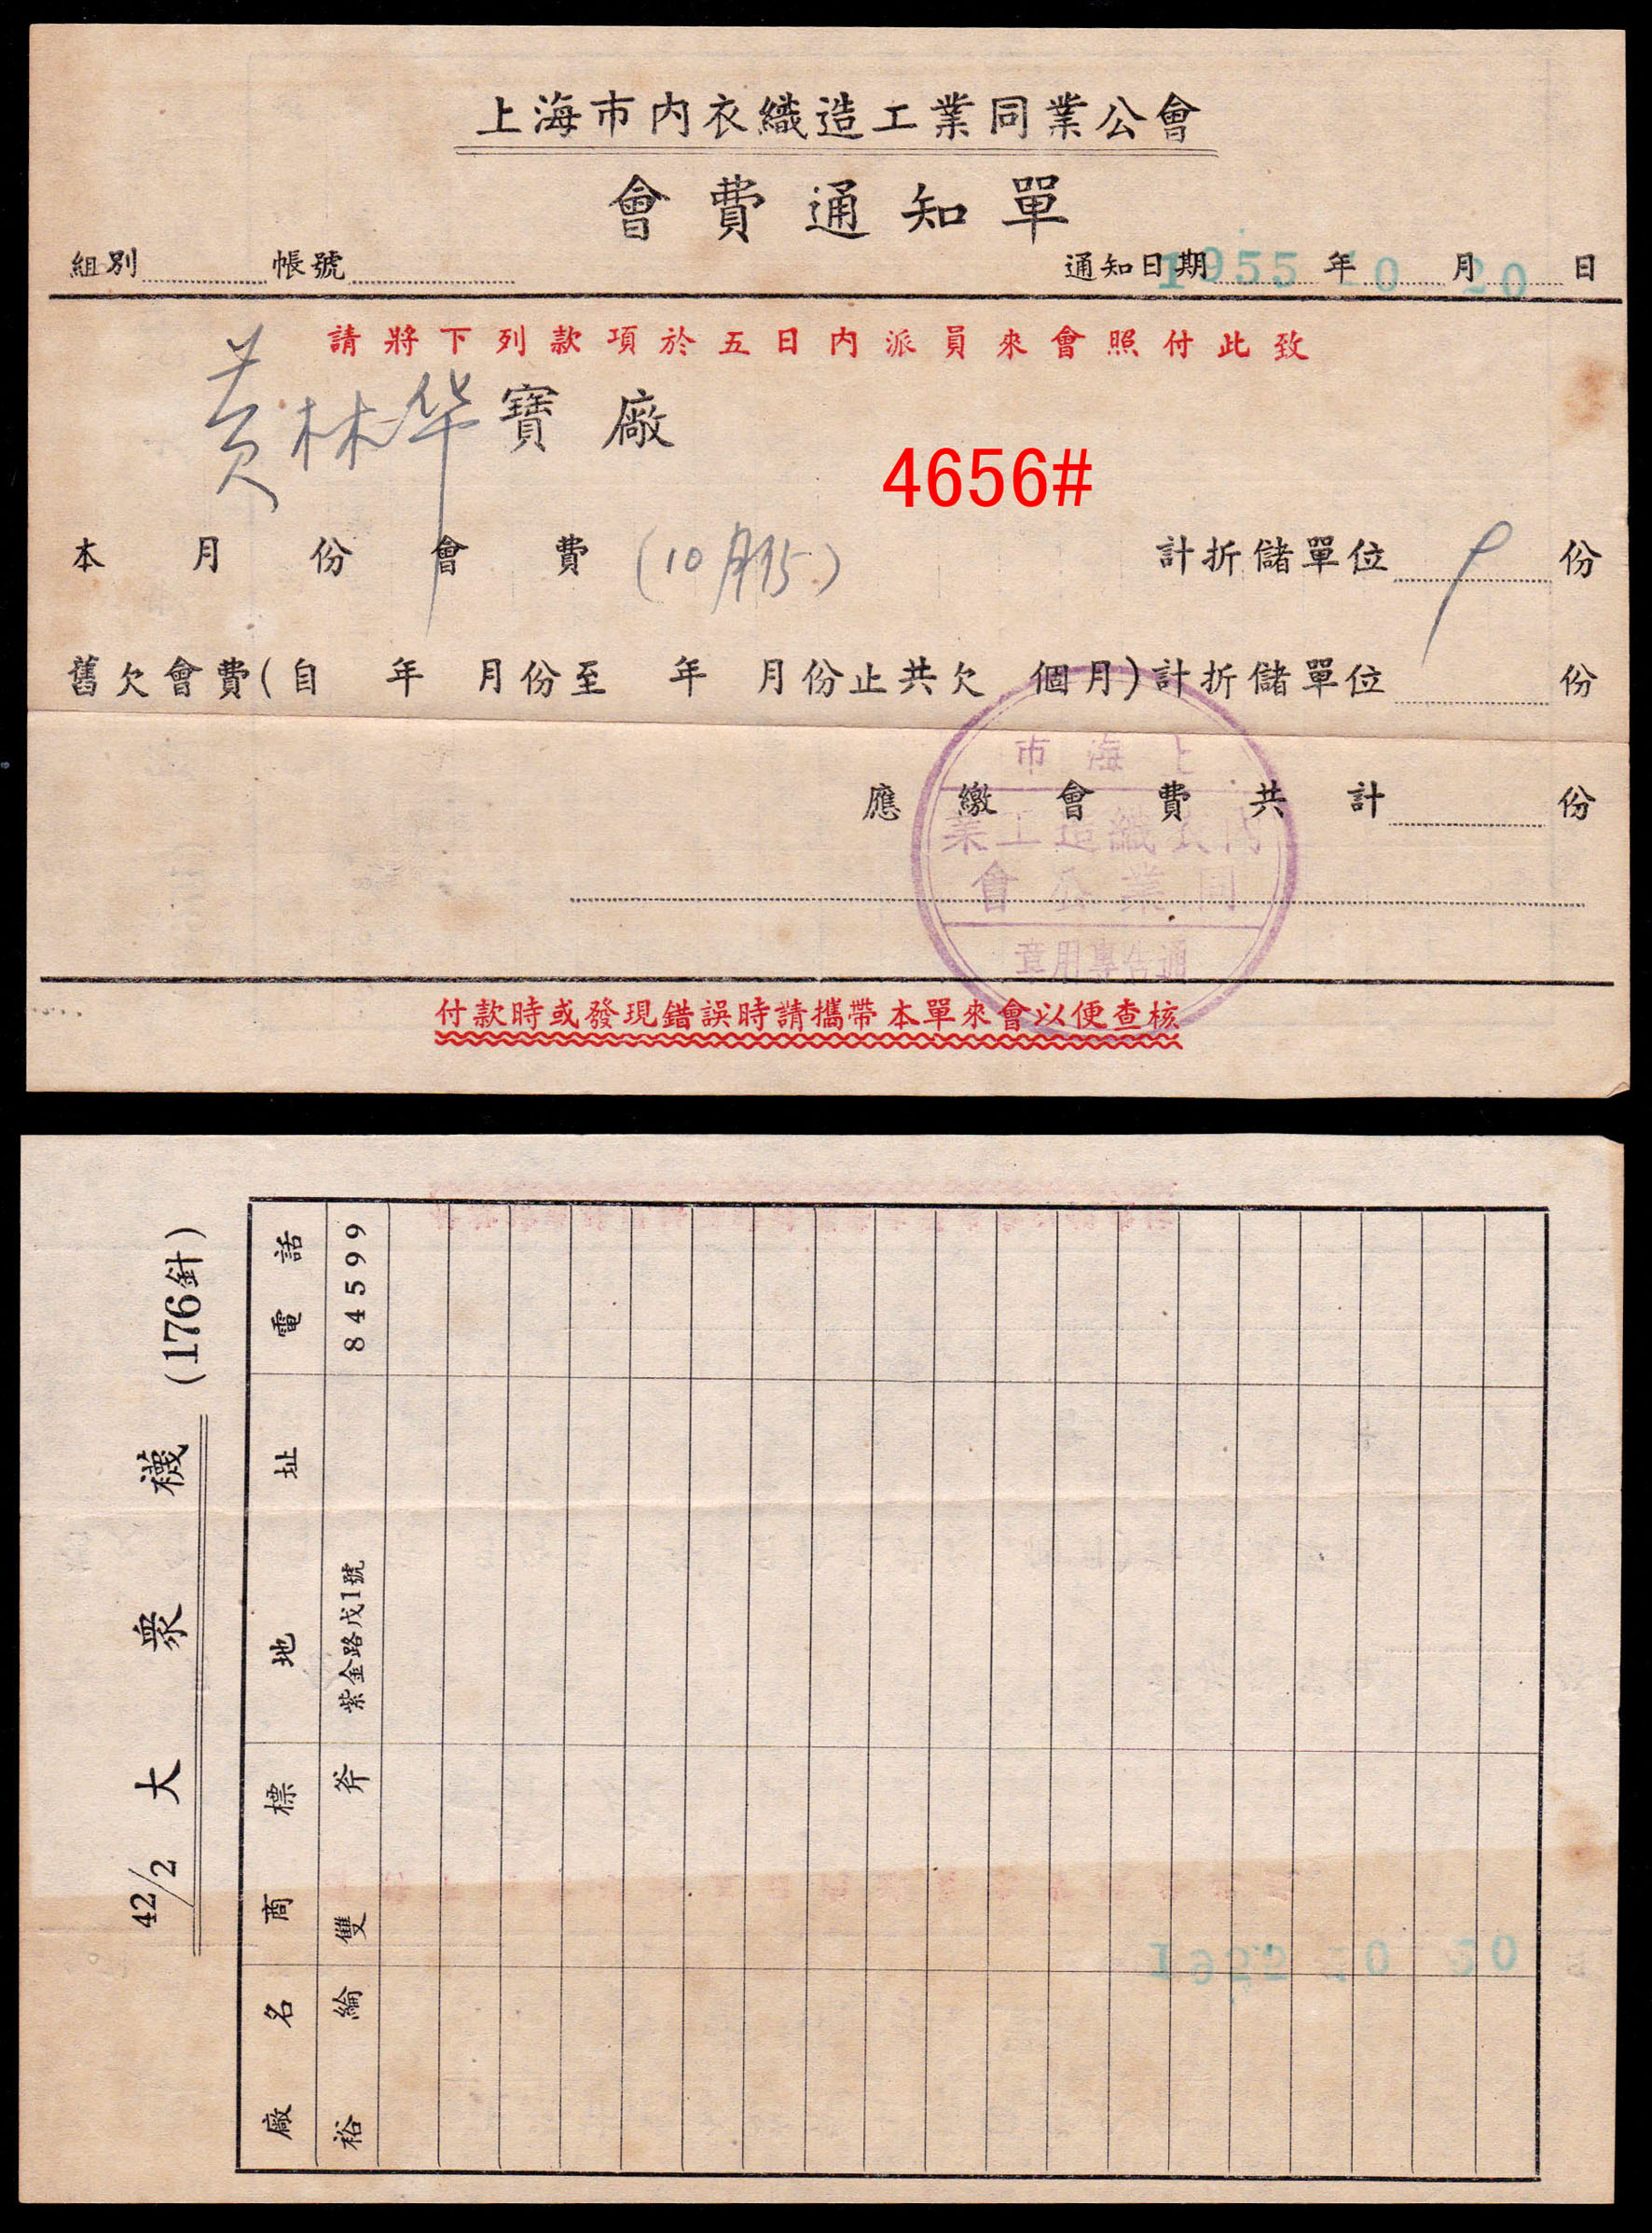 上海市內衣織造工業同業公會
會費通知單
組別 帳號 通知日期 1955 年 10 月 20 日
請將下列款項於五日內派員來會照付此致
黄林华 寶廠
4656#
本月份會費 (10月份) 計折儲單位 份
舊欠會費(自 年 月份至 年 月份止共欠 個月)計折儲單位 份
應繳會費共計 份
上海市
內衣織造工業
同業公會
通告專用章
付款時或發現錯誤時請攜帶本單來會以便查核
42/2 大眾襪 (176針)
廠名 商標 地址 電話
裕綸 雙斧 紫金路戊1號 84599